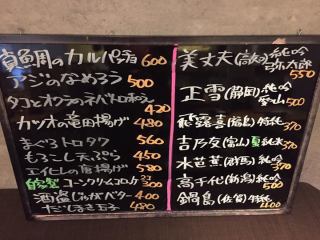 真鯛のカルパッチョ 600
アジのなめろう 500
タコとオクラのネバトロポン酢 420
カツオの竜田揚げ 480
まぐろトロタワ 560
もろこし天ぷら 450
エイヒレの唐揚げ 580
自家製コーンクリームコロッケ 300
酒盗じゃがバター 400
だし巻き玉子 480
美丈夫(高知)純吟
550
正雪(静岡)純吟
500
飛露喜(福島)特純 370
吉乃友(富山)夏純米 370
水芭蕉(群馬)純吟 370
高千代(新潟)純吟 500
鍋島(佐賀)特純 400